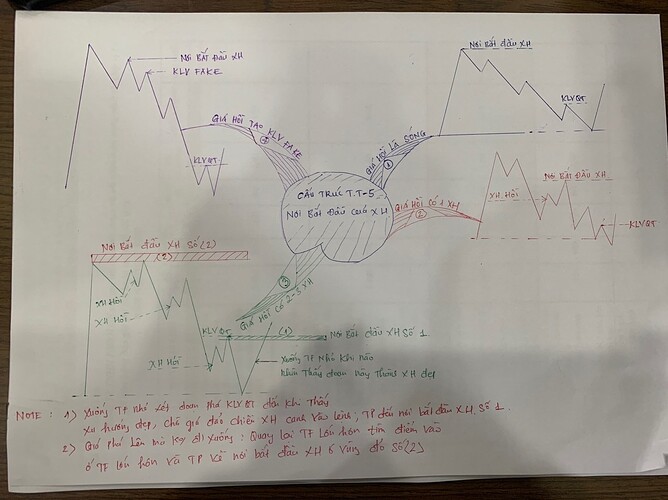 NƠI BẮT ĐẦU XH
KLV FAKE
GIÁ HỒI TẠO KLV FAKE
④
KLV QT
NƠI BẮT ĐẦU XH
KLVQT
GIÁ HỒI LÀ SÓNG
①
CẤU TRÚC T.T-5
NƠI BẮT ĐẦU CỦA XH
GIÁ HỒI CÓ 1 XH
②
XH HỒI
NƠI BẮT ĐẦU XH
KLVQT
NƠI BẮT ĐẦU XH SỐ(2)
(2)
XH HỒI
XH HỒI
XH HỒI
③
GIÁ HỒI CÓ 2-3 XH
KLV QT
(1)
NƠI BẮT ĐẦU XH SỐ 1
XUỐNG TF NHỎ KHI NÀO
NHÌN THẤY đoạn NÀY THÀNH XH đẹp
NOTE : 1) Xuống TF Nhỏ xét đoạn phá KLV QT đến khi Thấy
Xu hướng đẹp, chờ giá đảo chiều XH canh vào lệnh, TP đến nơi bắt đầu XH Số 1.
2) Giá phá Lên mà đi xuống : Quay lại TF Lớn hơn tìm điểm vào
ở TF lớn hơn và TP về nơi bắt đầu XH ở vùng đỏ Số(2)